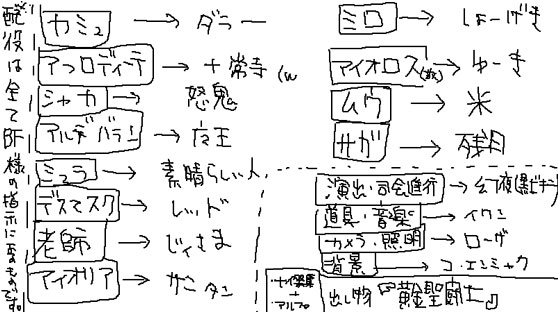 配役は全てBF様の指示に基くものです。
カミュ → ダラー
アフロディーテ → 十常寺(w
シャカ → 怒鬼
アルデバラン → 夜王
ミュラ → 素晴らしい人
デスマスク → レッド
老師 → じいさま
アイオリア → ザンタン
ミロ → しょーげき
アイオロス(故) → ゆーき
ムウ → 米
サガ → 残月
演出・司会進行 → 幻夜
道具・音楽 → イワン
カメラ・照明 → ローザ
背景 → コ・エンシャク
出し物『黄金聖闘士』